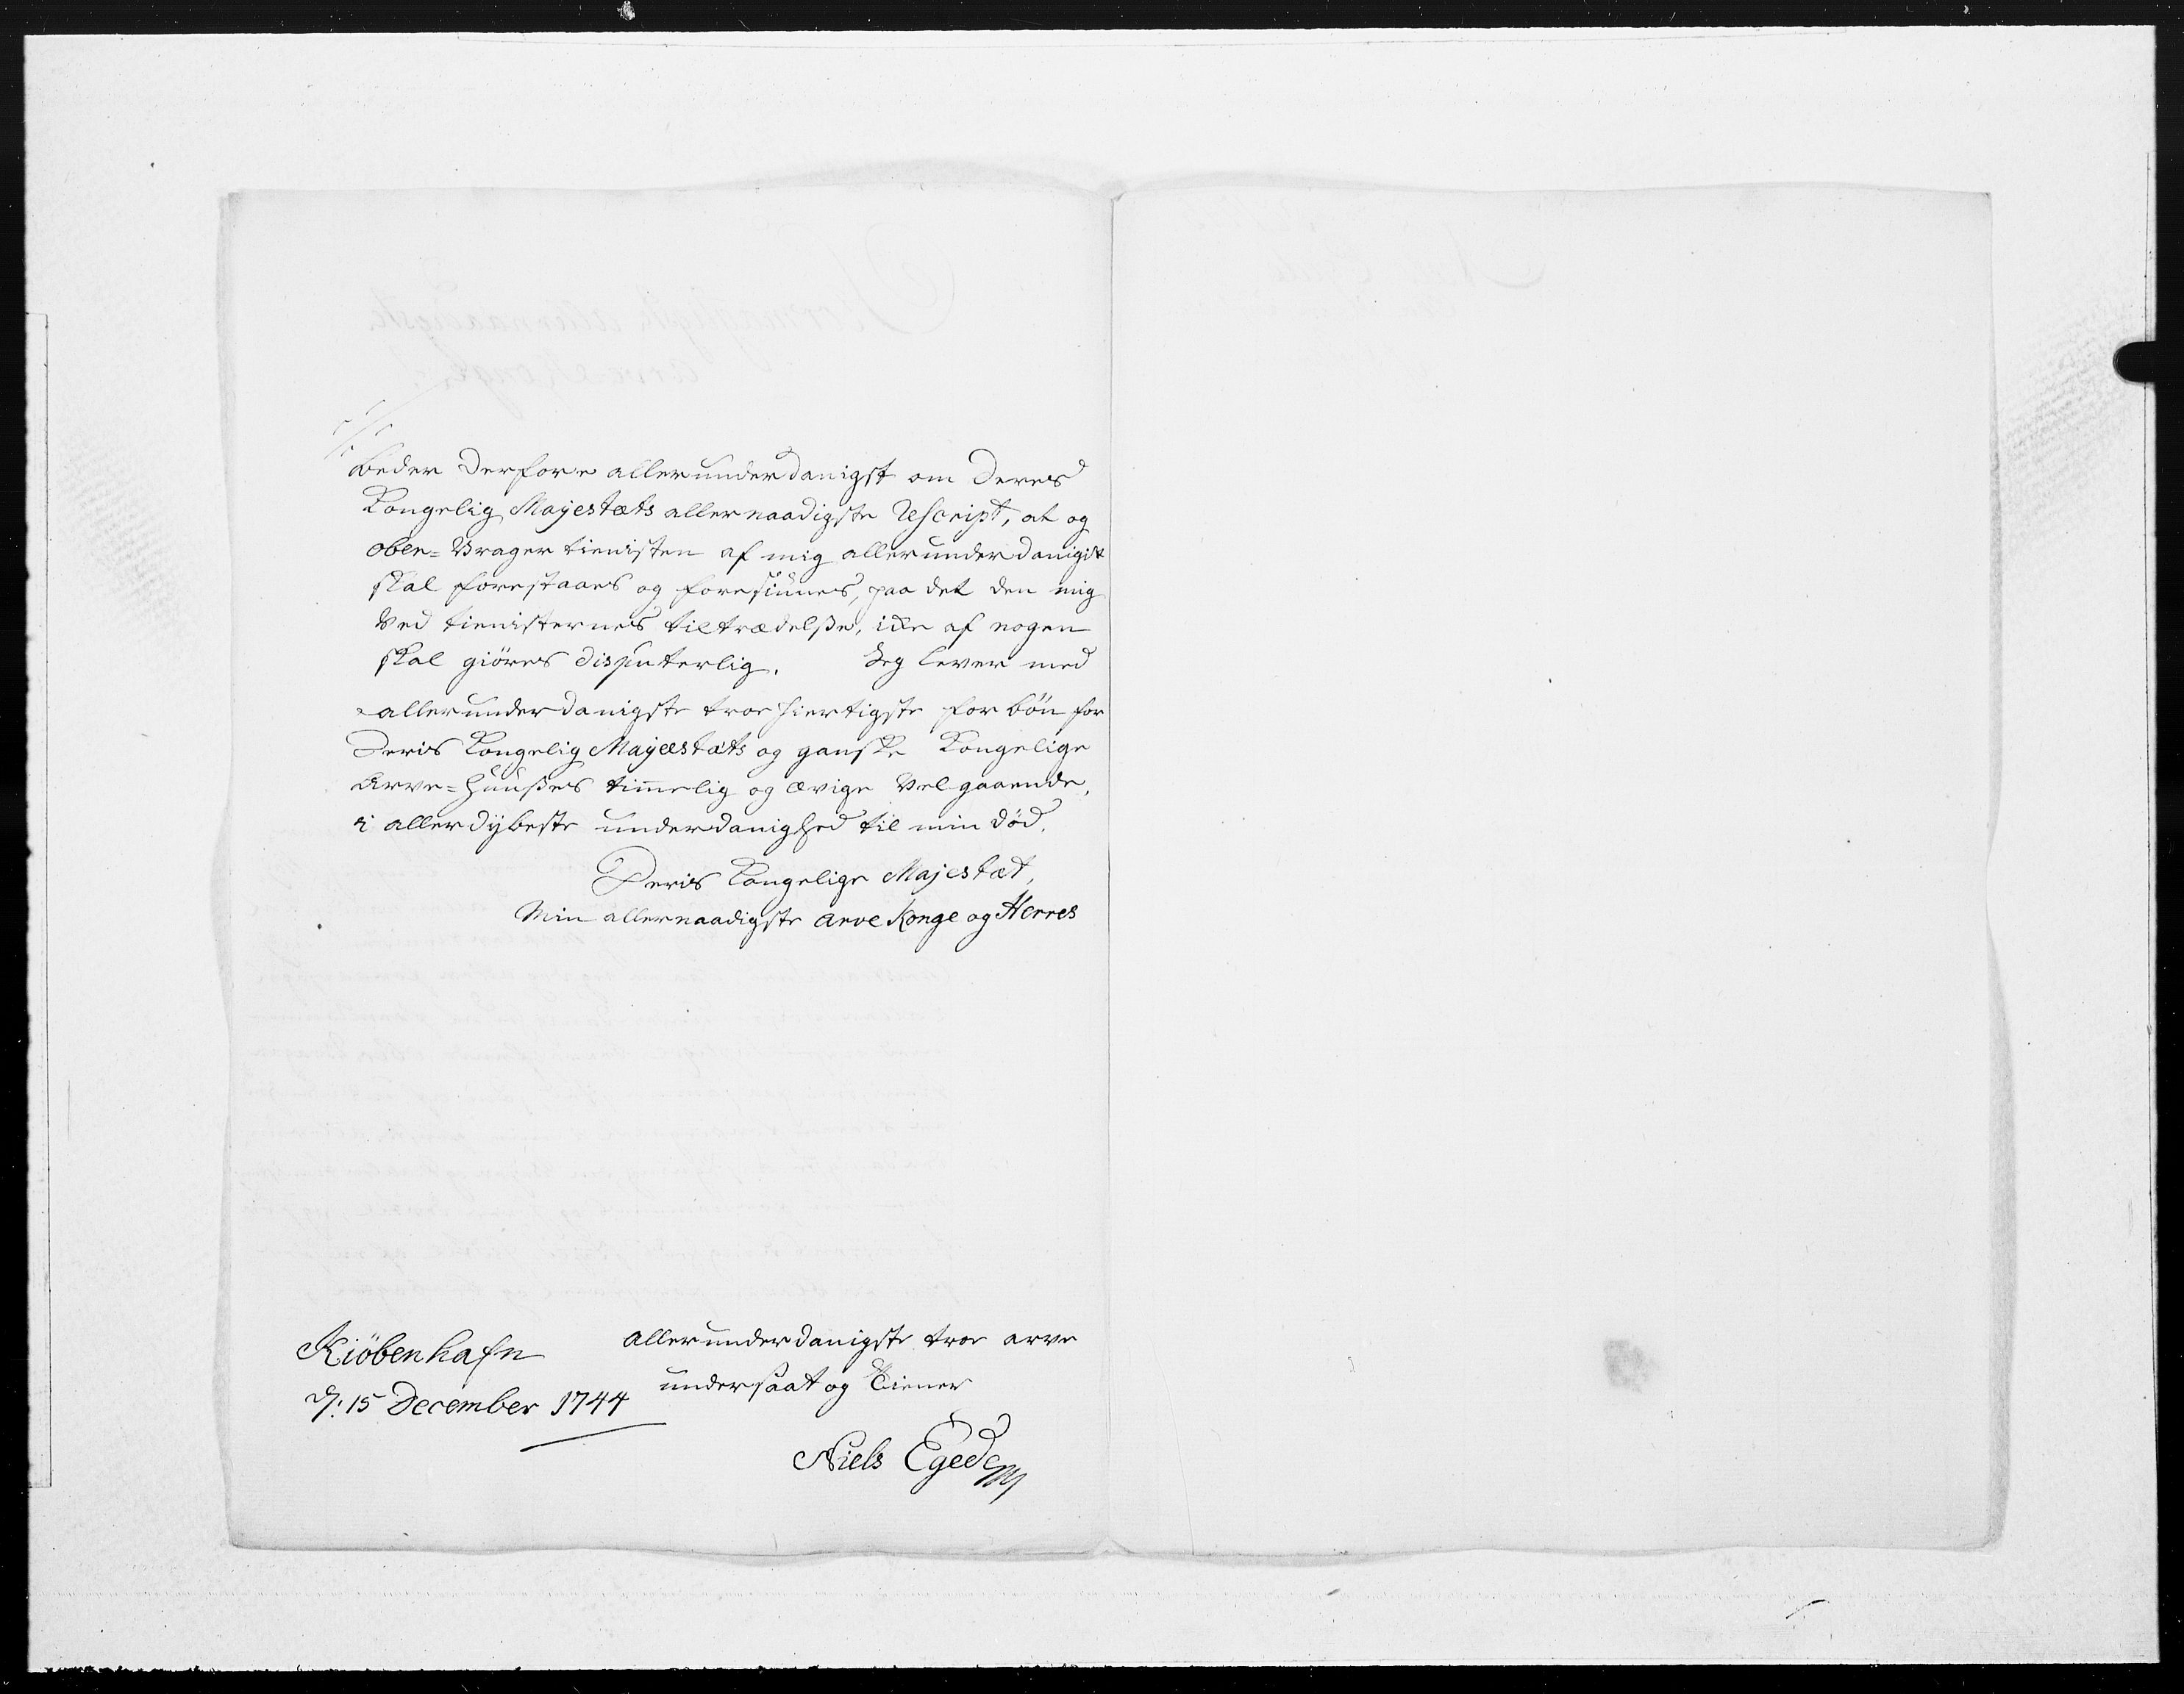 beder derfore allerunderdanigst om deres
Kongelig Mayestæts allernaadigste Rescript, at og
ober=Vrager tienisten af mig allerunderdanigst
skal forestaaes og foresiunes, paa det den mig
Ved tienisternes tiltrædelße, icke af nogen
skal giöres disputerlig. Jeg lever med
allerunderdanigste troe hiertigste for bön for
Deris Kongelig Mayestæts og ganske Kongelige
Arve=Huußes timmelig og ævige Velgaaende,
i allerdybeste underdanighed til min död.
Deris Kongelige Majestæt,
Min allernaadigste Arve Konge og Herres
Allerunderdanigste troe arve
undersaat og Tiener
Kiöbenhafn
d: 15 December 1744
Niels Egede